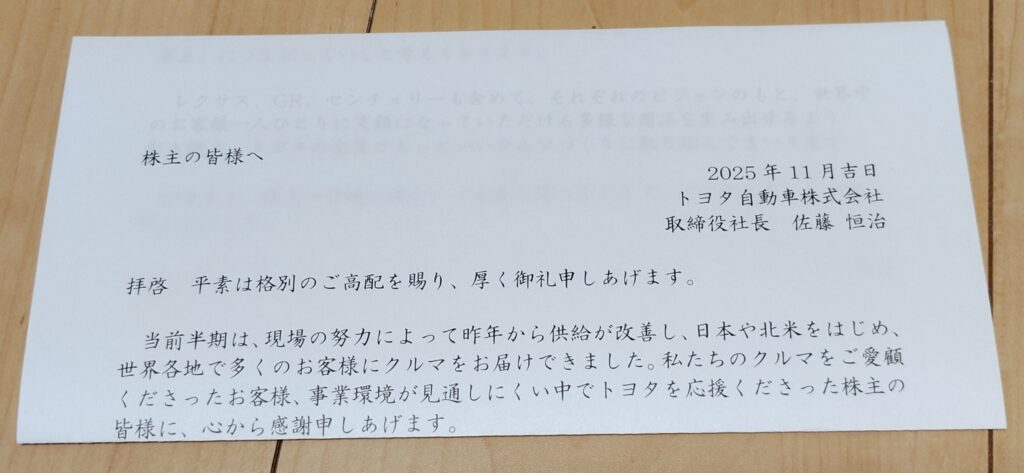 株主の皆様へ
2025年11月吉日
トヨタ自動車株式会社
取締役社長　佐藤 恒治
拝啓　平素は格別のご高配を賜り、厚く御礼申しあげます。
当前半期は、現場の努力によって昨年から供給が改善し、日本や北米をはじめ、
世界各地で多くのお客様にクルマをお届けできました。私たちのクルマをご愛顧
くださったお客様、事業環境が見通しにくい中でトヨタを応援くださった株主の
皆様に、心から感謝申しあげます。